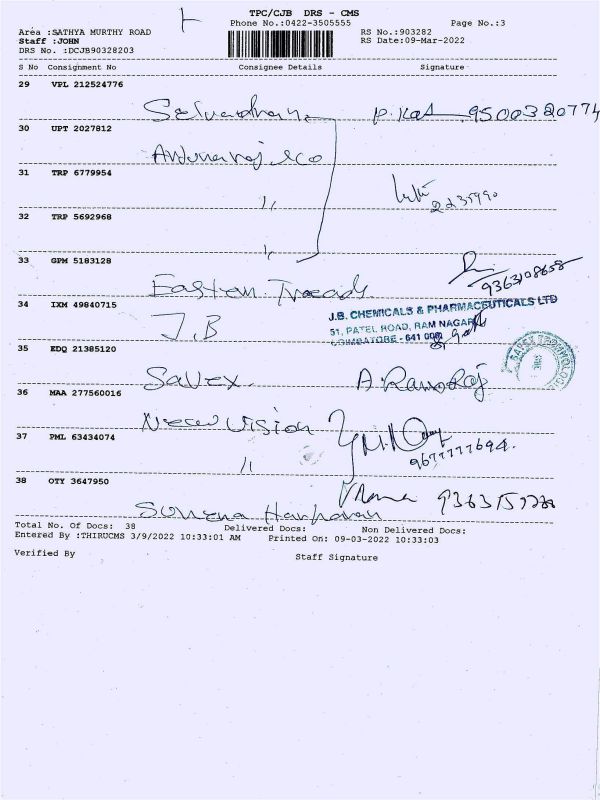 TPC/CJB DRS - CMS
Phone No.:0422-3505555 Page No.:3
Area :SATHYA MURTHY ROAD RS No.:903282
Staff :JOHN RS Date:09-Mar-2022
DRS No. :DCJB90328203
S No Consignment No Consignee Details Signature
29 VPL 212524776
9500320774
30 UPT 2027812
31 TRP 6779954
〃
2235990
32 TRP 5692968
〃
33 GPM 5183128
Eastern Treads 9363108658
34 IXM 49840715
J.B
J.B. CHEMICALS & PHARMACEUTICALS LTD
51, PATEL ROAD, RAM NAGAR
COIMBATORE - 641 009
35 EDQ 21385120
Savex A. Ramraj
36 MAA 277560016
New Vision
37 PML 63434074
〃 9677777694.
38 OTY 3647950
Total No. Of Docs: 38 Delivered Docs: Non Delivered Docs:
Entered By :THIRUCMS 3/9/2022 10:33:01 AM Printed On: 09-03-2022 10:33:03
Verified By Staff Signature